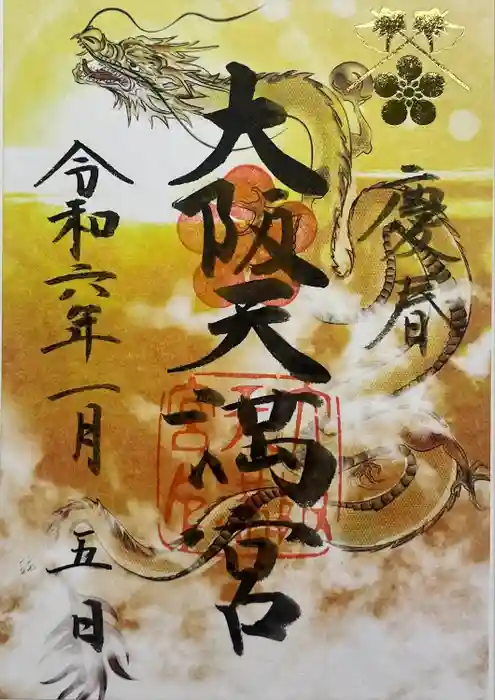 慶春
大阪天満宮
令和六年一月五日